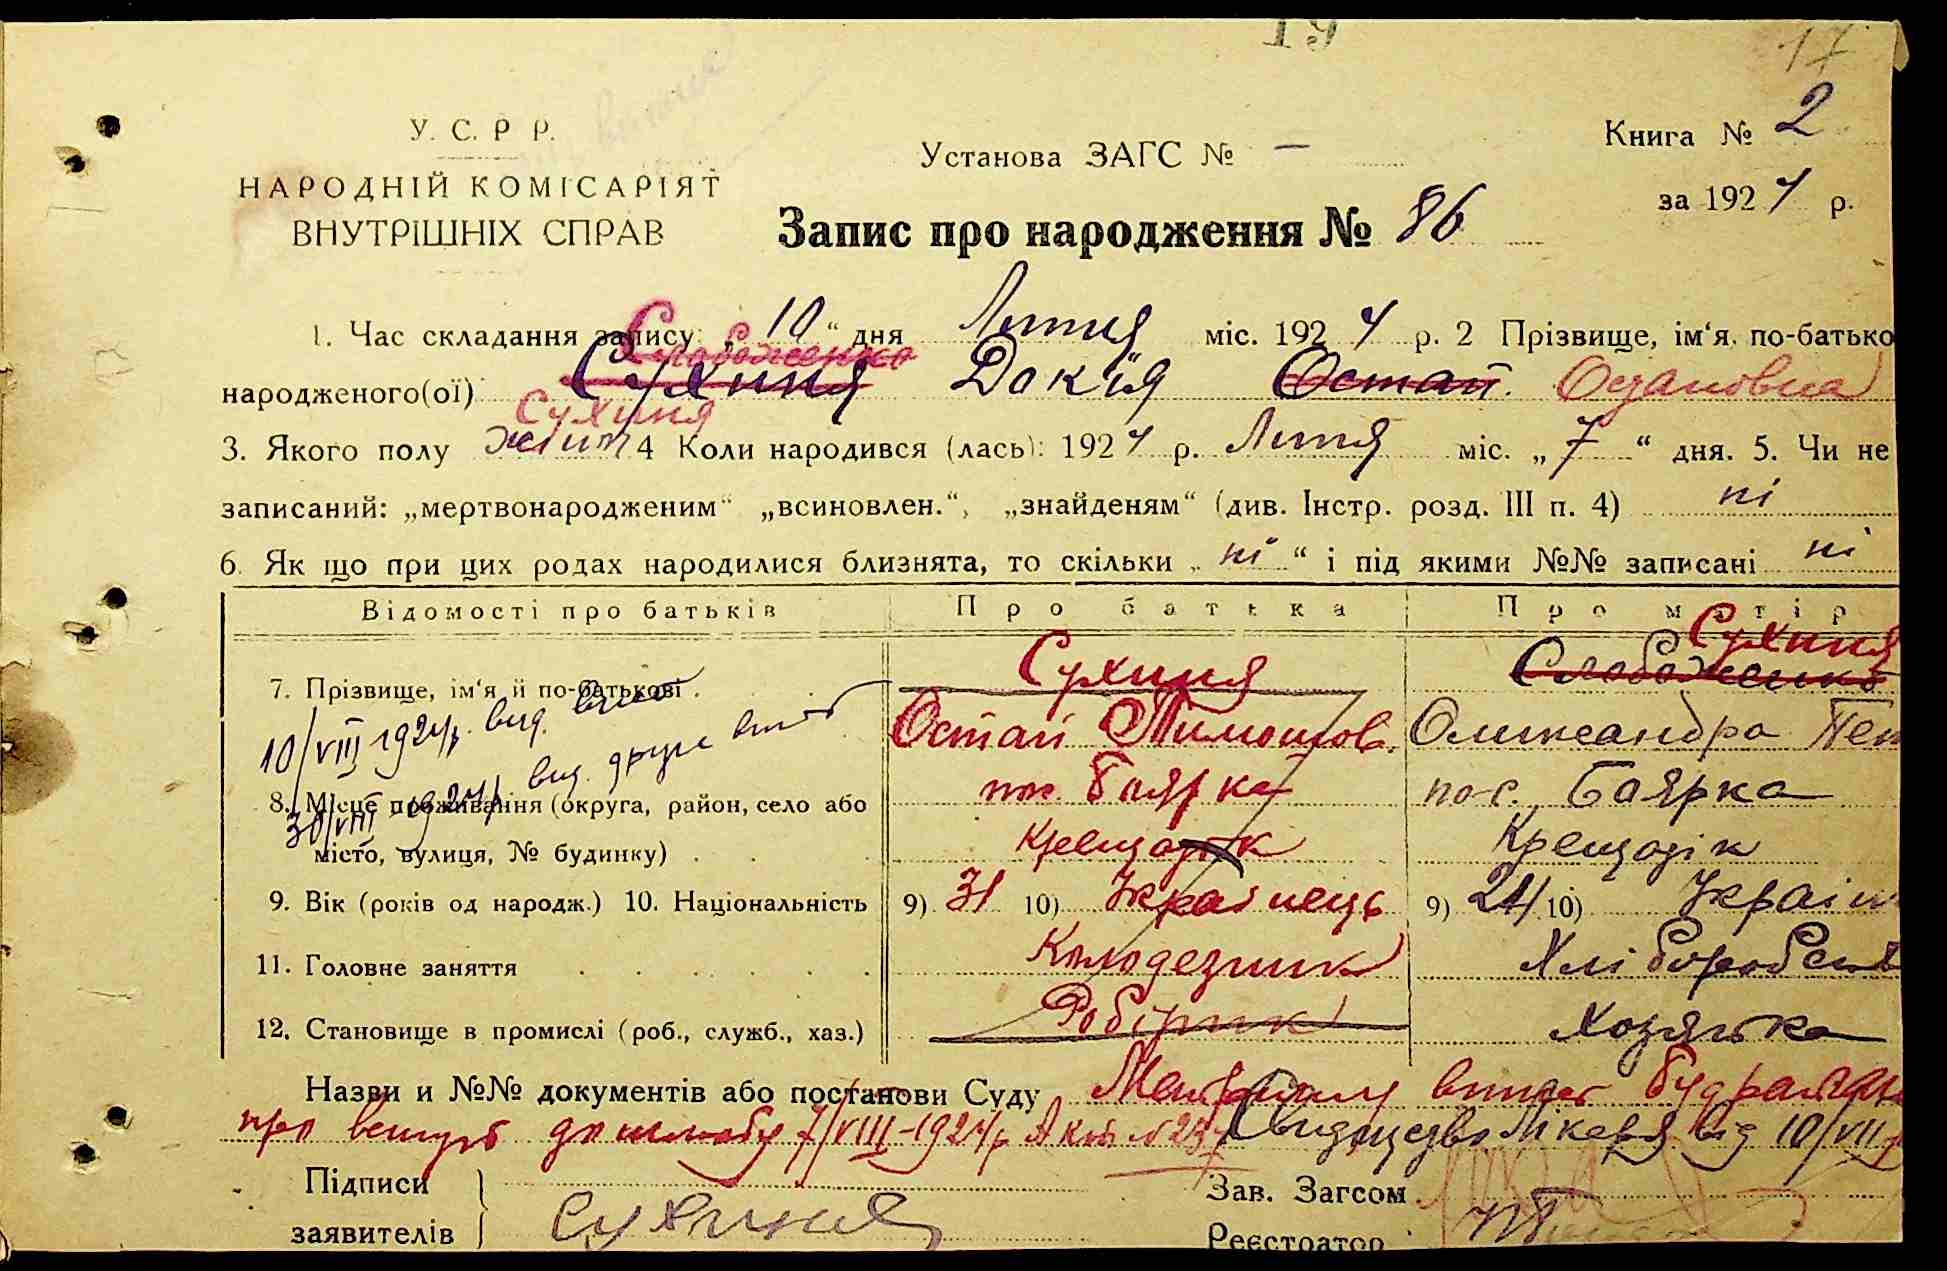 19
17
У. С. Р Р.
НАРОДНІЙ КОМІСАРІЯТ
ВНУТРІШНІХ СПРАВ
Установа ЗАГС № —
Книга № 2
за 1924 р.
Запис про народження № 86
1. Час складання запису: „10“ дня Липня міс. 1924 р. 2 Прізвище, ім‘я, по-батько
Слобоженко
народженого(ої) Сухиня Докія Остап. Остаповна
Сухиня
3. Якого полу жіноч 4 Коли народився (лась): 1924 р. Липня міс. „7“ дня. 5. Чи не
записаний: „мертвонародженим“ „всиновлен.“, „знайденям“ (див. Інстр. розд. III п. 4) ні
6. Як що при цих родах народилися близнята, то скільки „ні“ і під якими №№ записані ні
Відомості про батьків Про батька Про матір
Сухиня
7. Прізвище, ім‘я й по-батькові Сухиня Слобоженко
10/VIII 1924р. вид. Остап Тимошов. Олександра
30/VIII 1924р. вид. друге
8. Місце проживання (округа, район, село або пос. Боярка пос. Боярка
місто, вулиця, № будинку) Крещатік Крещатік
9. Вік (років од народж.) 10. Національність 9) 31 10) Українець 9) 24 10)
11. Головне заняття Колодезник
12. Становище в промислі (роб., служб., хаз.) Робітник Хозяйка
Назви и №№ документів або постанови Суду
про вступ до шлюбу 7/VIII-1924р Акт №237 Свидоцтво лікаря від 10/VII
Підписи
заявителів Сухиня
Зав. Загсом
Реєстратор